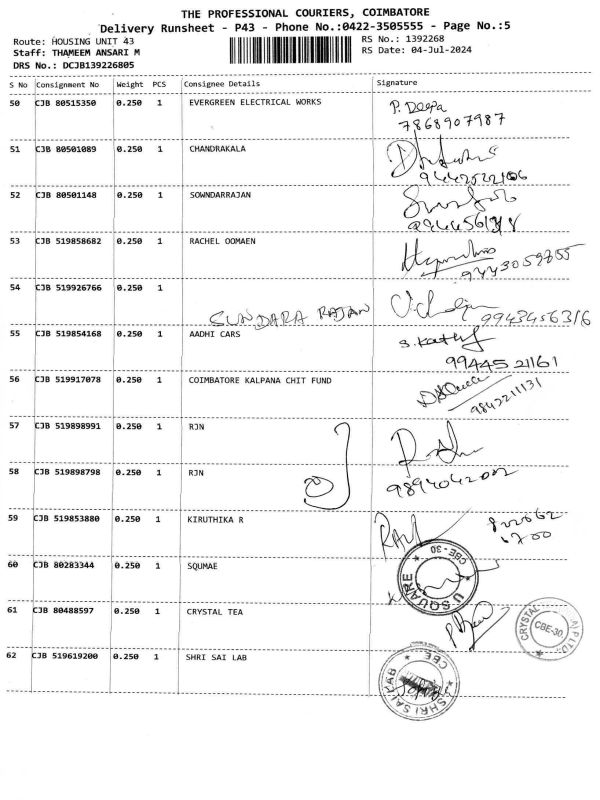 THE PROFESSIONAL COURIERS, COIMBATORE
Delivery Runsheet - P43 - Phone No.:0422-3505555 - Page No.:5
Route: HOUSING UNIT 43
Staff: THAMEEM ANSARI M
DRS No.: DCJB139226805
RS No.: 1392268
RS Date: 04-Jul-2024
S No Consignment No Weight PCS Consignee Details Signature
50 CJB 80515350 0.250 1 EVERGREEN ELECTRICAL WORKS P. Deepa
7868907987
51 CJB 80501089 0.250 1 CHANDRAKALA
52 CJB 80501148 0.250 1 SOWNDARRAJAN
53 CJB 519858682 0.250 1 RACHEL OOMAEN
9443059855
54 CJB 519926766 0.250 1
SUNDARA RAJAN 9943456316
55 CJB 519854168 0.250 1 AADHI CARS S. Kathy
9944521161
56 CJB 519917078 0.250 1 COIMBATORE KALPANA CHIT FUND
9842211131
57 CJB 519898991 0.250 1 RJN
58 CJB 519898798 0.250 1 RJN
9894042002
59 CJB 519853880 0.250 1 KIRUTHIKA R
60 CJB 80283344 0.250 1 SQUMAE
U SQUARE
CBE-30
61 CJB 80488597 0.250 1 CRYSTAL TEA
CRYSTAL
CBE-30
62 CJB 519619200 0.250 1 SHRI SAI LAB
SHRI SAI LAB
CBE